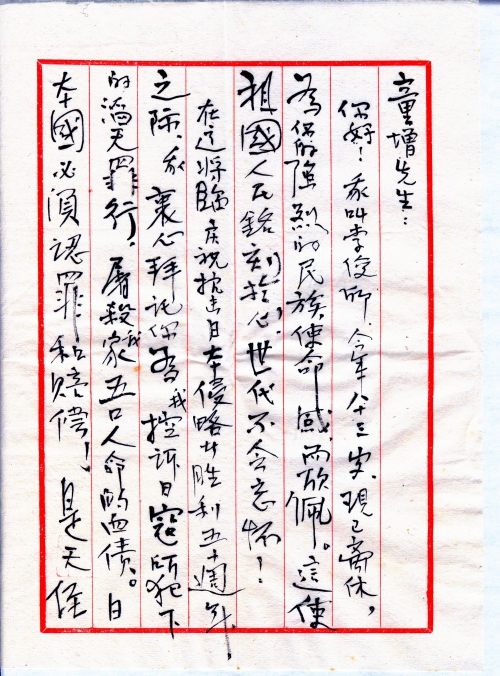 童增先生：
你好！我叫李俊卿，今年八十三岁，现已离休，
為你的強烈的民族使命感而欽佩。這使
祖國人民銘刻於心，世代不会忘怀！
在這将臨庆祝抗击日本侵略者胜利五十週年
之际，我衷心拜託你為我控訴日寇所犯下
的滔天罪行，屠殺我家五口人命的血债。日
本國必須認罪和赔偿！是天经